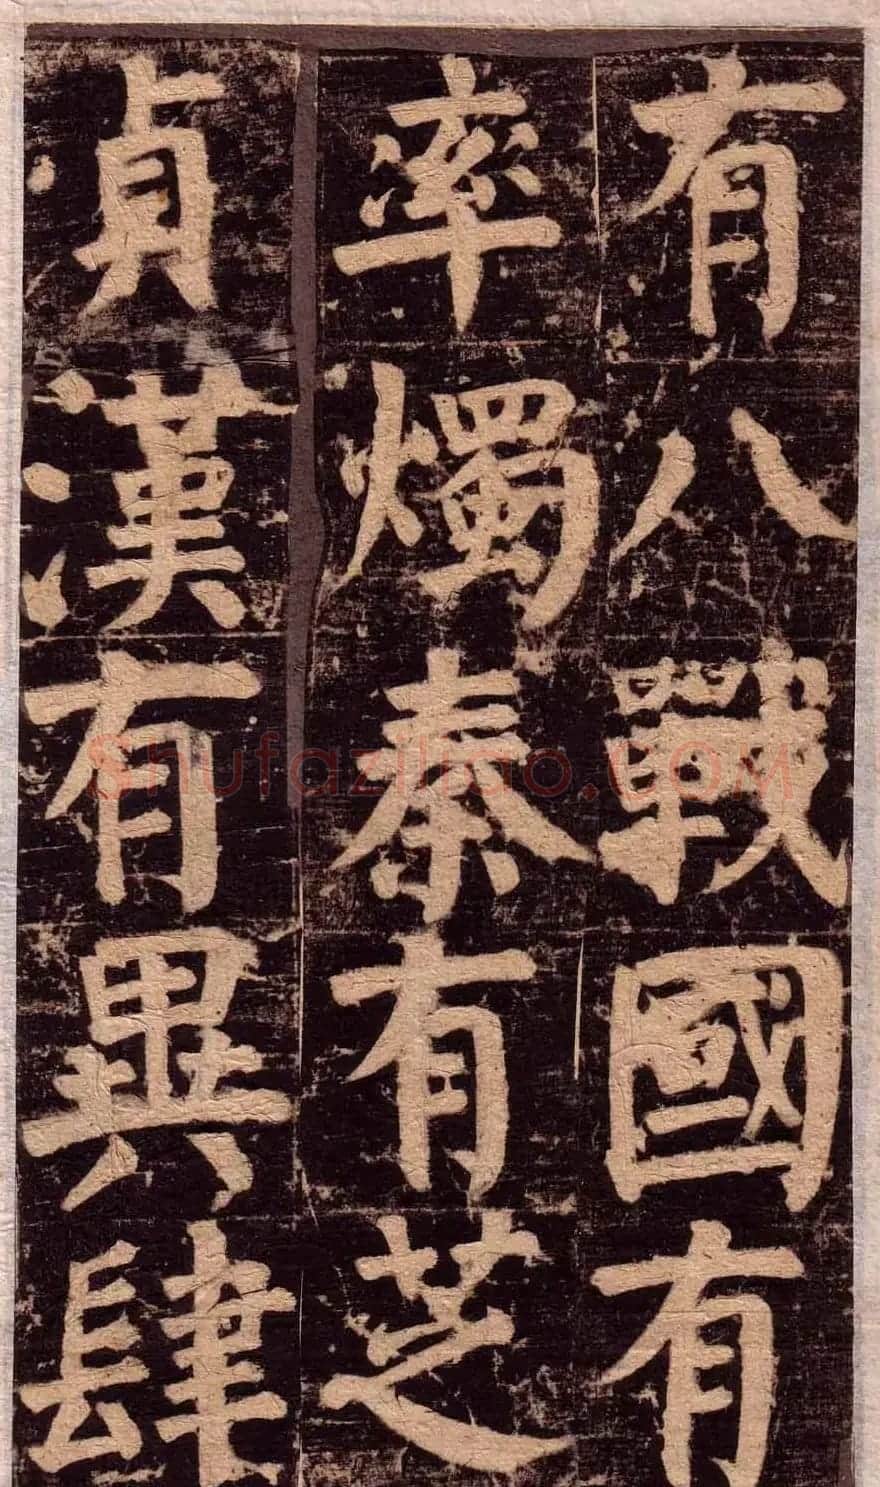 有八戰國有
率燭秦有芝
貞漢有異肆
Shufaziliao.com